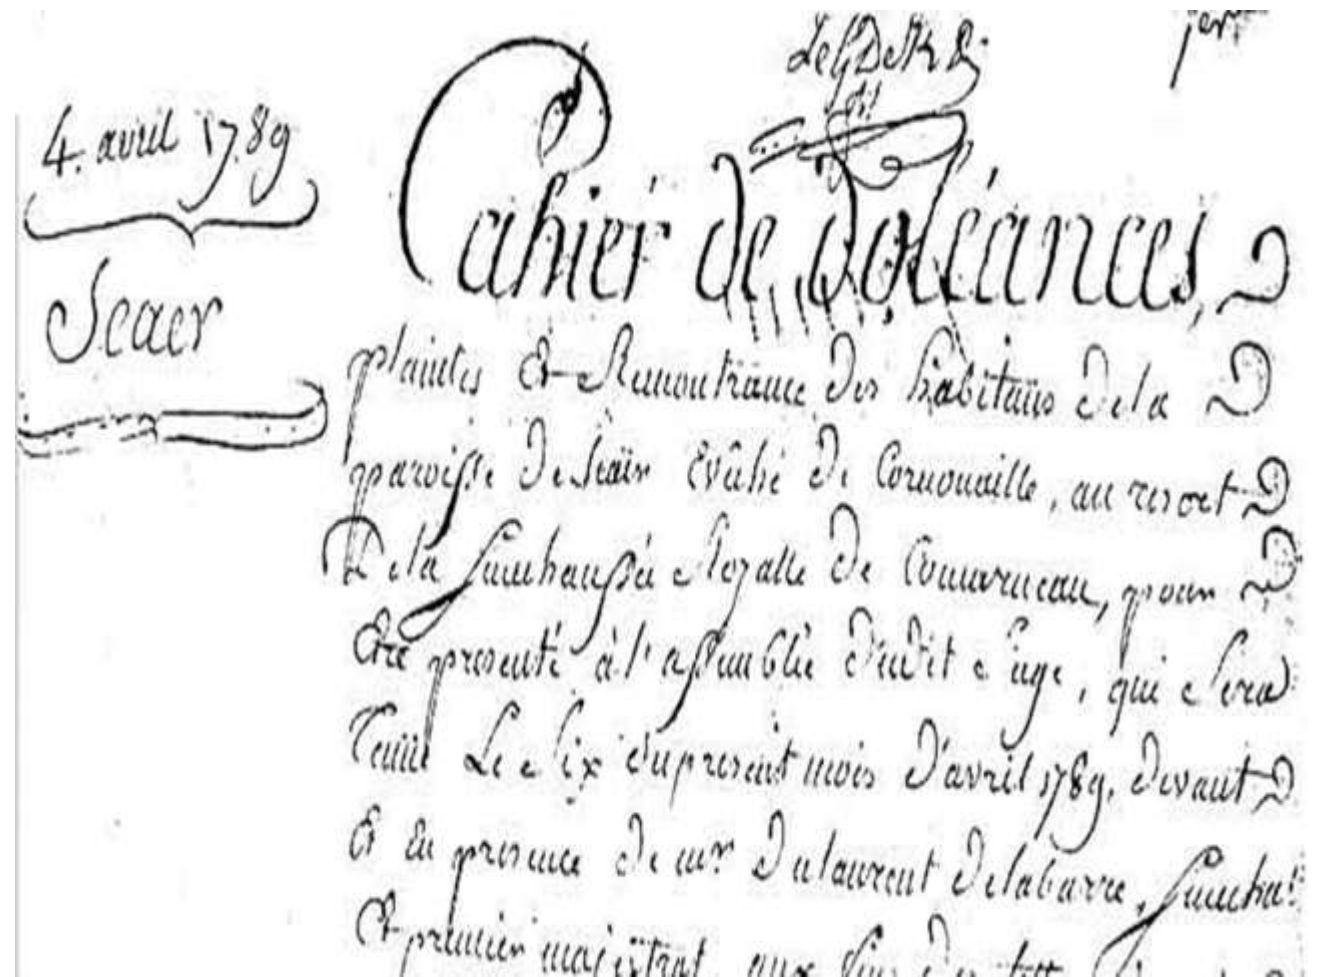 4. avril 1789
Scaer
Cahier de doléances,
plaintes Et Remontrance des habitans de la
paroisse de Scaër Evêché de Cornouaille, au resort
De la Sénéchaussée Royalle de Concarneau, pour
Etre presenté à l'assemblée dudit Siege, qui Sera
Tenüe Le Six du present mois d'avril 1789. devant
Et En presence de mr. Dulaurent Delabarre, Sénéchal
Et premier majistrat, aux fins des